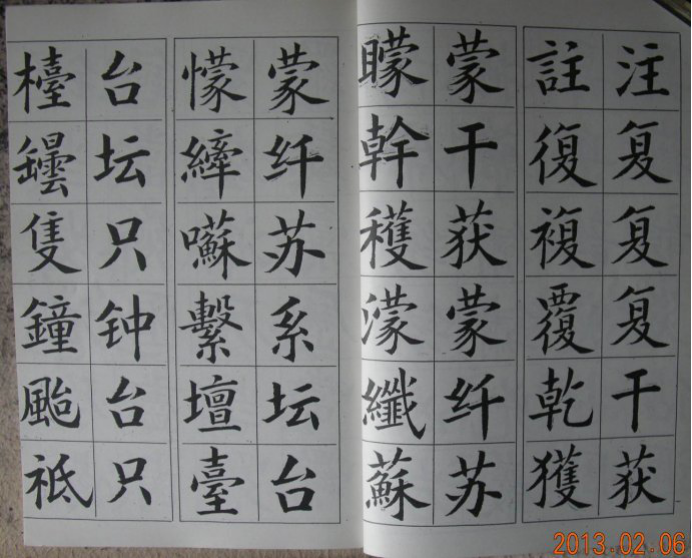 註注
復复
複复
覆复
乾干
獲获
矇蒙
幹干
穫获
濛蒙
纖纤
蘇苏
懞蒙
縴纤
囌苏
繫系
壇坛
臺台
檯台
罎坛
隻只
鐘钟
颱台
祗只
2013.02.06